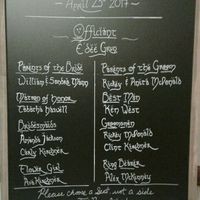 April 25th 2014
Officiant
Parents of the Bride
William & Sandra Mann
Matron of Honor
Tabatha
Bridesmaids
Amanda Jackson
Carly Kirchner
Flower Girl
Ava Kirchner
Parents of the Groom
Rickey & Anita McDonald
Best Man
Ken West
Groomsmen
Rickey McDonald
Clint Kirchner
Ring Bearer
Alex McKinley
Please chose a seat not a side